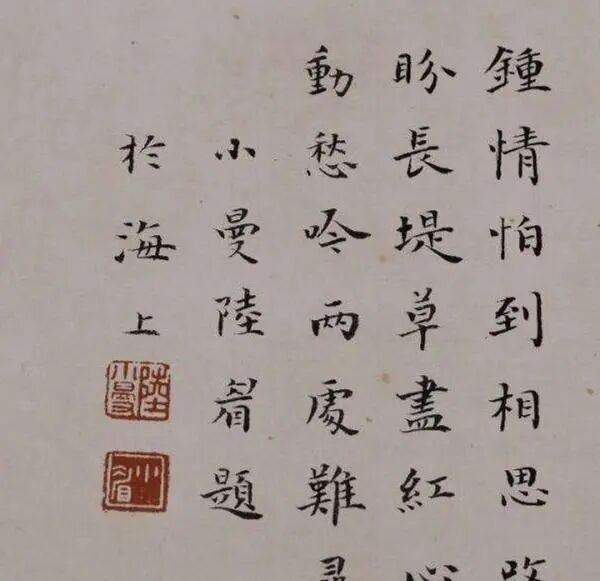 鍾情怕到相思
盼長堤草盡紅心
動愁吟兩處難
小曼陸眉題
於海上
陸小曼
小眉